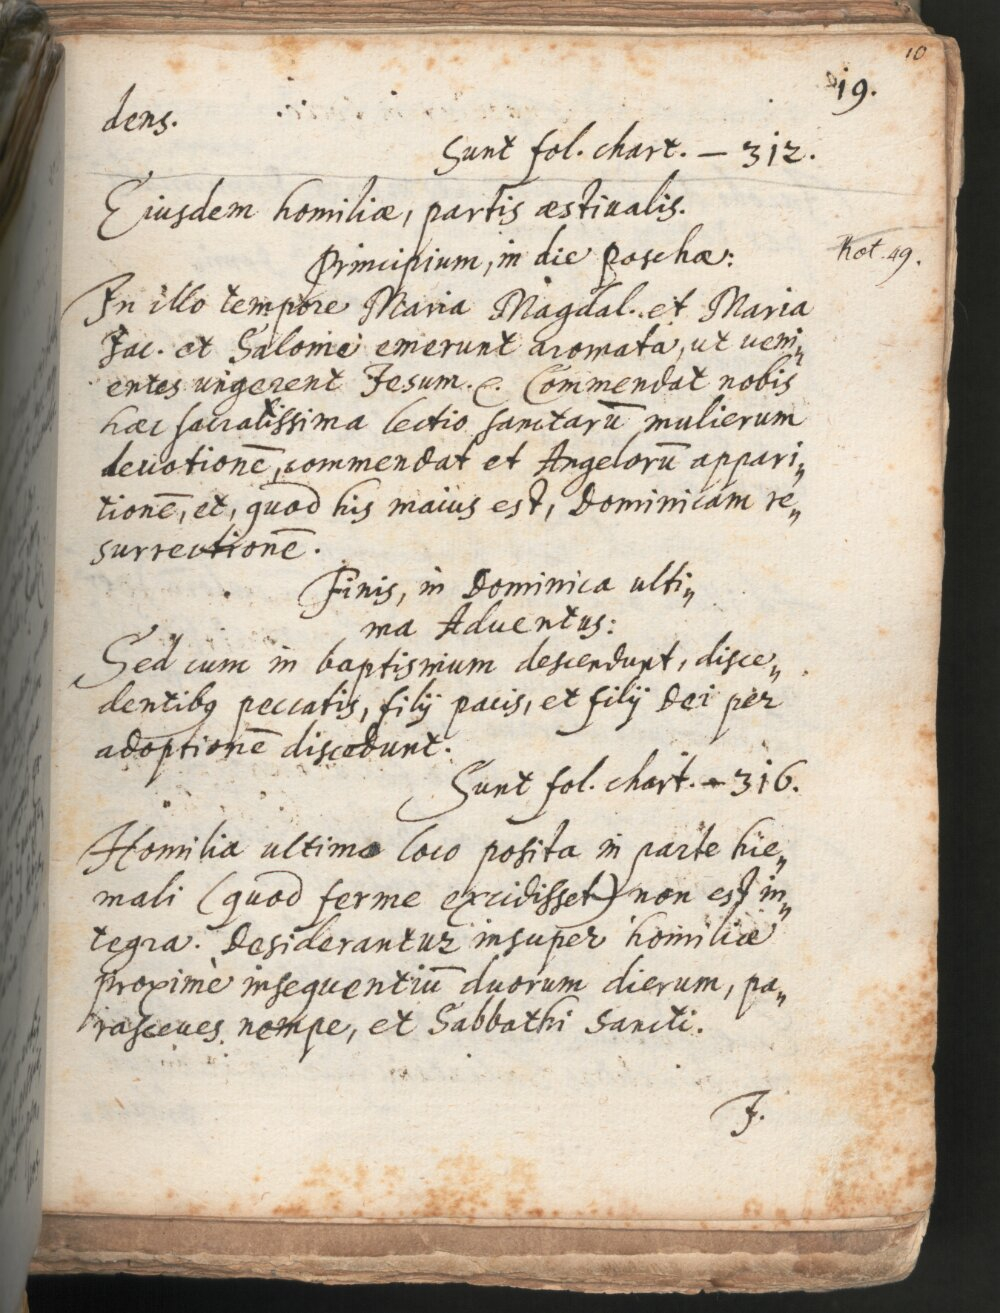 10
19.
dens.
Sunt fol. chart. — 312.
Eiusdem homiliæ, partis æstiualis.
Principium, in die Paschæ:
Not. 49.
In illo tempore Maria Magdal. et Maria
Jac. et Salome emerunt aromata, ut ueni„
entes ungerent Jesum. &. Commendat nobis
hæc sacratissima lectio sanctarū mulierum
deuotionē, commendat et Angelorū appari„
tionē, et, quod his maius est, Dominicam re„
surrectionē.
Finis, in Dominica ulti„
ma Aduentus:
Sed cum in baptismum descendunt, disce„
dentibꝯ peccatis, filij pacis, et filij Dei per
adoptionē discedunt.
Sunt fol. chart. — 316.
Homilia ultimo loco posita in parte hie„
mali (quod ferme excidisset) non est in„
tegra. Desiderantur insuper homiliæ
proximè insequentiū duorum dierum, pa„
rasceues nempe, et Sabbathi Sancti.
J.